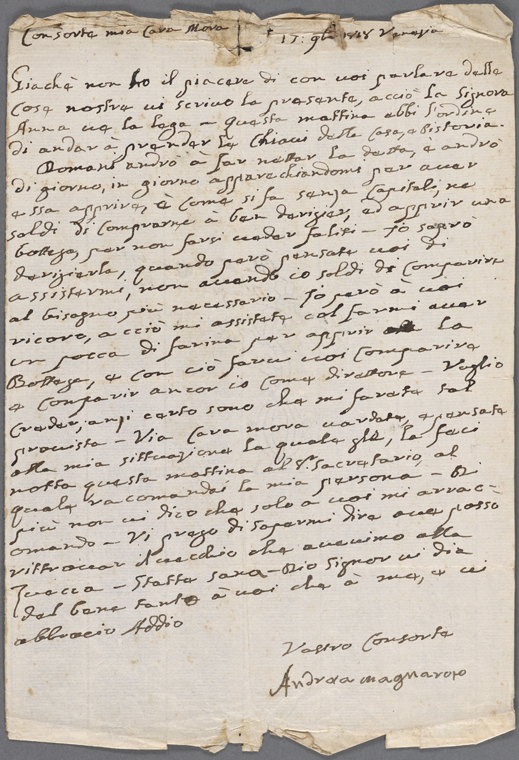 Consorte mia Cara Mora 17: 9bre Venezia
Giachè non ho il piacere di con voi parlare delle
Cose nostre vi scrivo la presente, acciò la Signora
Anna ve la lega - questa mattina ebbi l'ordine
di andar à prender le Chiavi della Casa, e
Domani andrò a far nettar la detta, e andrò
di giorno, in giorno apparechiandomi per aver
e essa apprire, è Come si fa senza Capitali, ne
soldi di Comprarne à ben ed apprir una
bottega, per non farsi veder faliti - Io saprò
quando però pensate voi di
assistermi, non avendo io soldi di Comparire
al bisogno più necessario - Io però à voi
ricoro, acciò mi assistete col farmi aver
un pocca di farina per apprir la
Bottega, e con ciò farci voi Comparire
e Comparir ancor io Come direttore - Voglio
creder, anzi certo sono che mi farete tal
provista - Via Cara mora vardate, e pensate
alla mia sittuazione la quale la feci
notta questa mattina al Sr. Sacretario, al
quale racomandai la mia persona - Di
più non vi dico che solo a voi mi arrac-
omando - Vi prego di sapermi dire ave posso
rittrovar il vecchio che avevimo alla
Zuecca - Statte sana - Dio Signor vi dia
del bene tanto à voi che à me, e vi
abbracio Addio
Vostro Consorte
Andrea Magnarozo